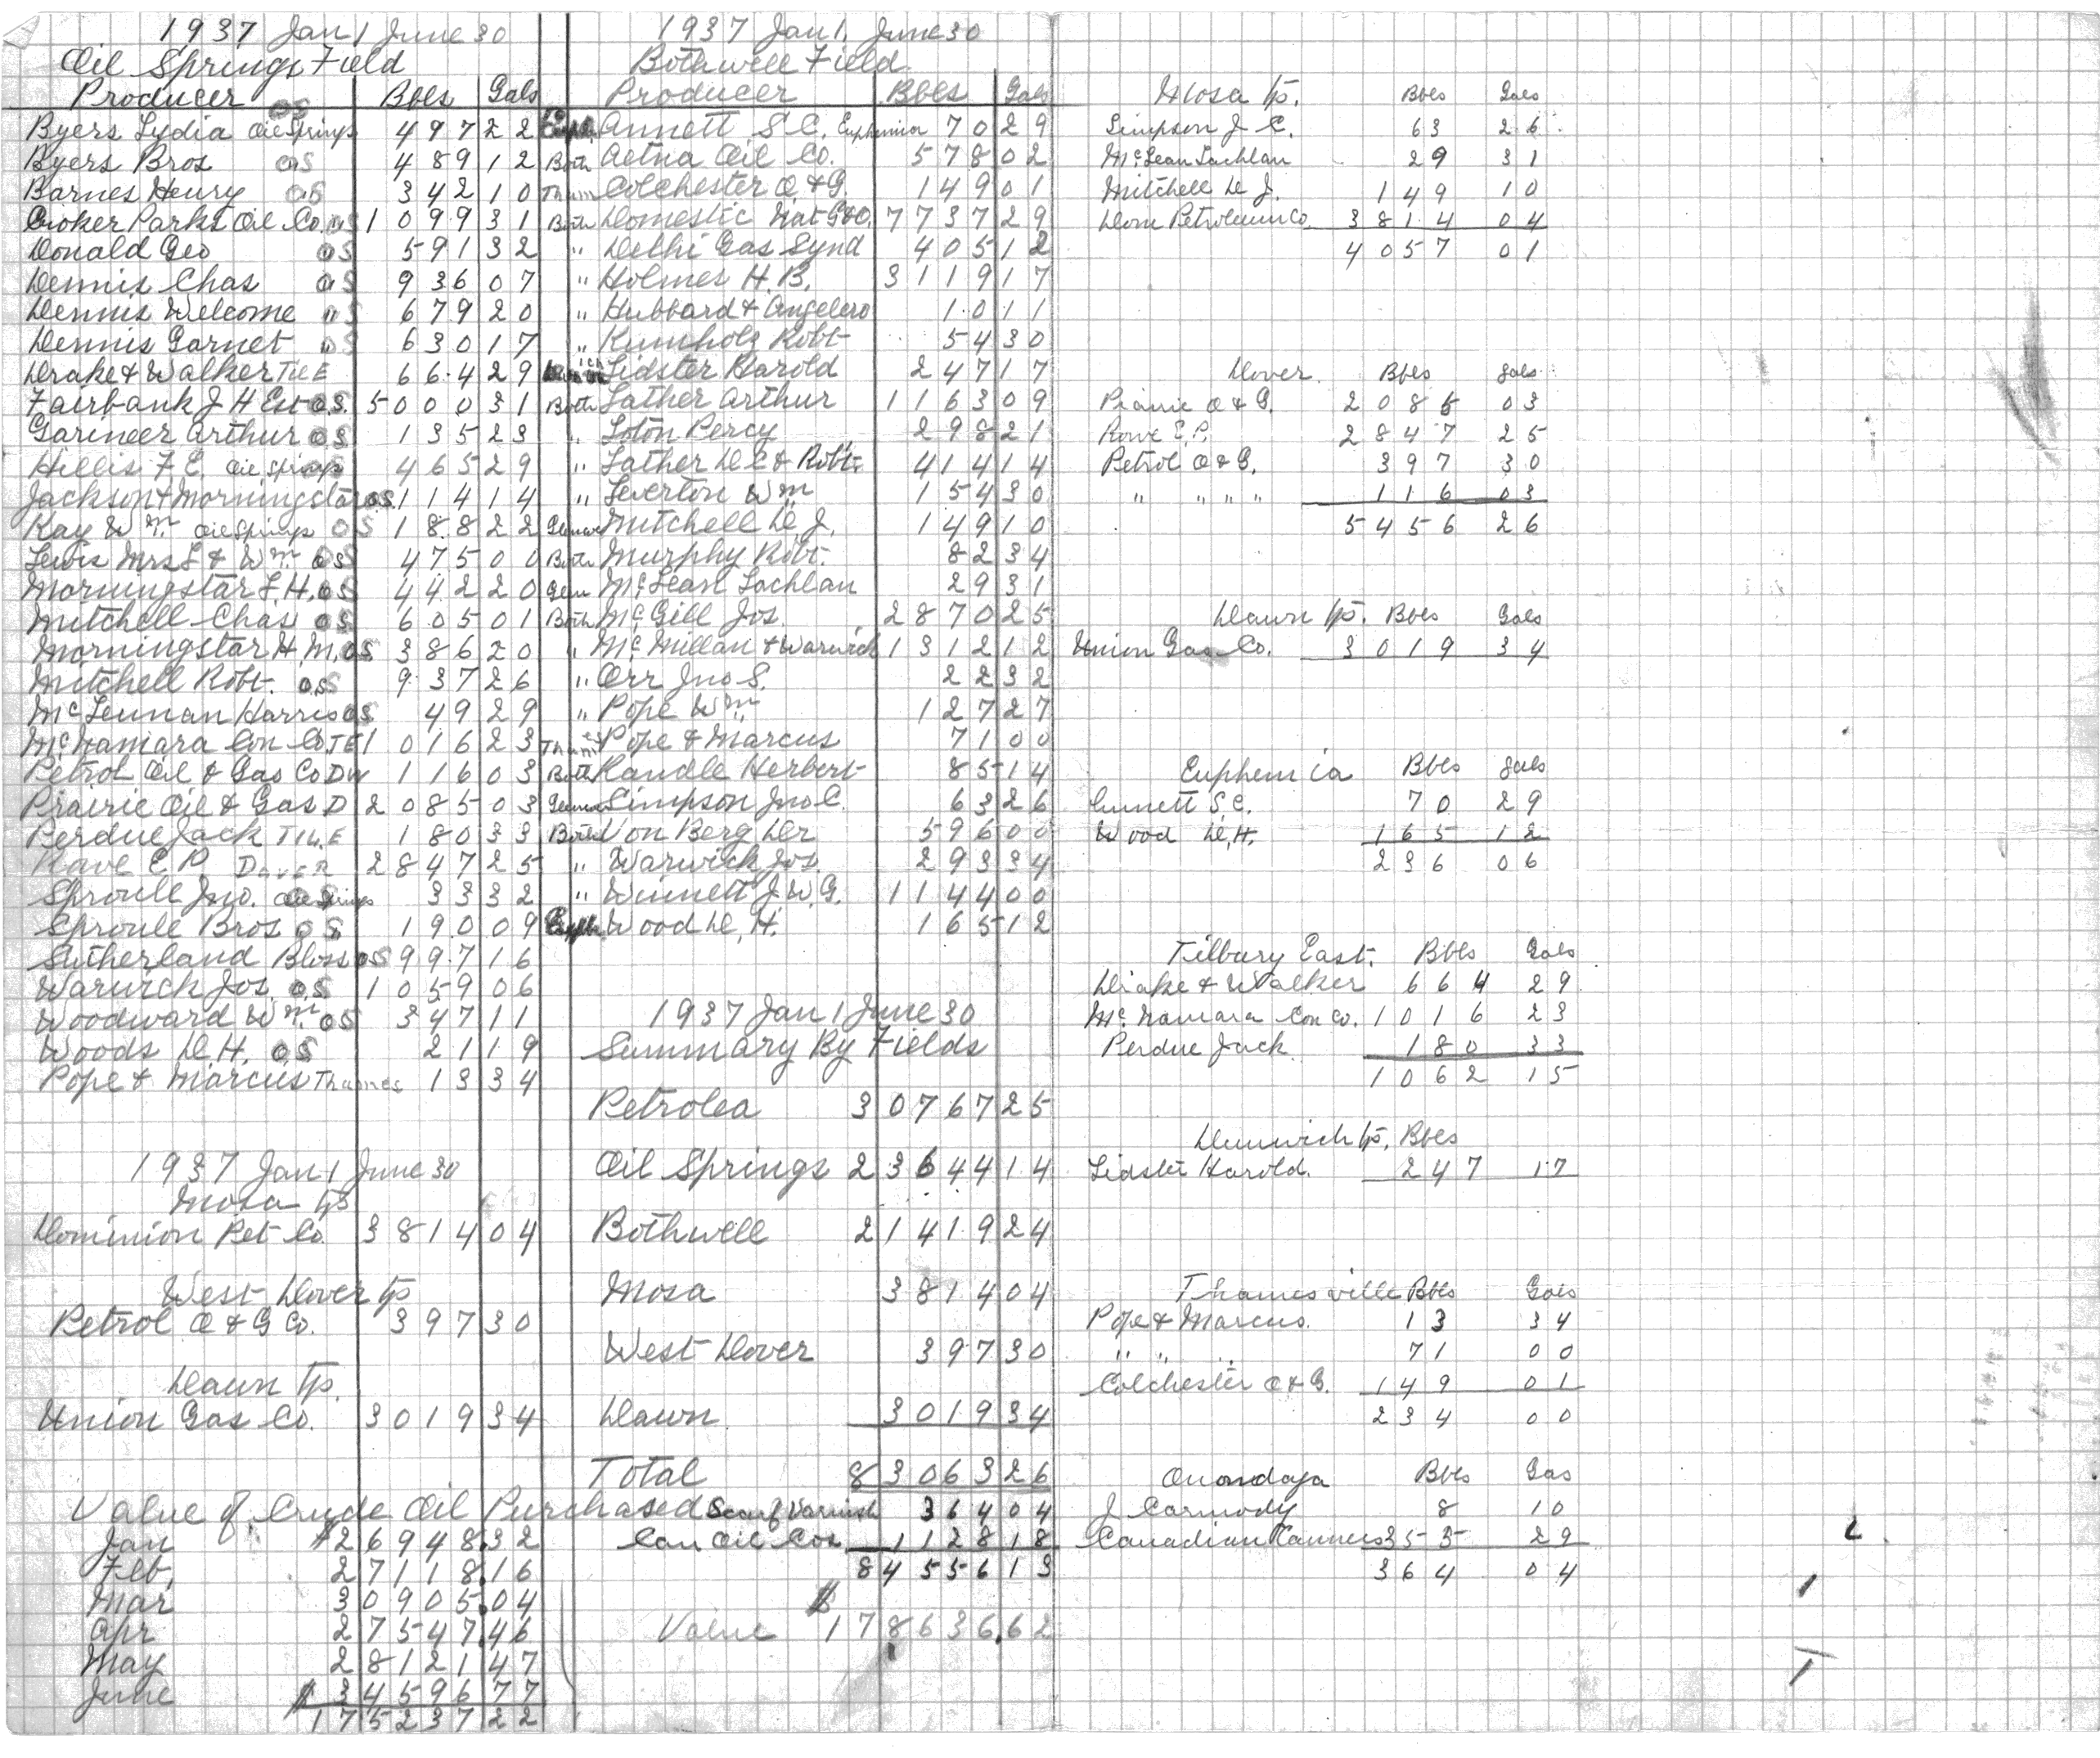 1937 Jan 1 June 30
Oil Springs Field
Producer Bbls Gals
OS
Byers Lydia Oil Springs 497 22
Byers Bros OS 489 12
Barnes Henry OS 342 10
Croker Parks Oil Co. OS 1099 31
Donald Geo OS 591 32
Dennis Chas OS 936 07
Dennis Welcome " OS 679 20
Dennis Garnet " OS 630 17
Drake & Walker TILE 664 29
Fairbank J H Est O.S. 5000 31
Garineer Arthur OS 135 23
Hillis F. E. Oil Springs OS 465 29
Jackson & Morningstar OS 114 14
Kay Wm. Oil Springs OS 188 22
Lewis Mrs L & Wm. OS 475 00
Morningstar F. H. OS 442 20
Mitchell Chas OS 605 01
Morningstar H. M. OS 386 20
Mitchell Robt. OS 937 26
McLennan Harris OS 49 29
McNamara Con Co. TE 1016 23
Petrol Oil & Gas Co DW 116 03
Prairie Oil & Gas D 2085 03
Perdue Jack TILE 180 33
Rave E P DOVER 2847 25
Sproule Jno. Oil Springs 33 32
Sproule Bros OS 190 09
Sutherland Bloss OS 997 16
Warwick Jos. OS 1059 06
Woodward Wm. OS 347 11
Woods D. H. OS 21 19
Pope & Marcus Thames 13 34
1937 Jan 1 June 30
Mosa Tp
Dominion Pet Co. 3814 04
West Dover Tp
Petrol O & G Co. 397 30
Dawn Tp.
Union Gas Co. 3019 34
Value of Crude Oil Purchased
Jan $26948.32
Feb. 27118.16
Mar 30905.04
Apr 27547.46
May 28121 47
June $34596 77
175237 22
1937 Jan 1. June 30
Bothwell Field
Producer Bbls Gals
Euph. Annett S C. Euphemia 70 29
Both Aetna Oil Co. 578 02
Tham Colchester O & G. 149 01
Both Domestic Nat G&O. 7737 29
" Delhi Gas Synd 405 12
" Holmes H. B. 3119 17
" Hubbard & Angelero 10 11
" Kumholz Robt 54 30
Lidster Harold 247 17
Both Lather Arthur 1163 09
" Loton Percy 298 21
" Lather D C & Robt. 414 14
" Leverton Wm 154 30
Glencoe Mitchell D. J. 149 10
Both Murphy Robt. 82 34
Glen McLean Lachlan 29 31
Both McGill Jos. 2870 25
" McMillan & Warwick 1312 12
" Orr Jno S. 22 32
" Pope Wm 127 27
Thames Pope & Marcus 71 00
Both Randle Herbert 85 14
Glencoe Simpson Jno C. 63 26
Both Von Berg Dr 596 00
" Warwick Jos. 293 34
" Winnett J. W. G. 1144 00
Euph Wood D. H. 165 12
1937 Jan 1 June 30
Summary By Fields
Petrolea 30767 25
Oil Springs 23644 14
Bothwell 21419 24
Mosa 3814 04
West Dover 397 30
Dawn 3019 34
Total 83063 26
Scarf Varnish 364 04
Can Oil Cos 1128 18
84556 13
$
Value 178636.62
Mosa Tp. Bbls Gals
Simpson J C. 63 26
McLean Lachlan 29 31
Mitchell D J. 149 10
Dom Petroleum Co. 3814 04
4057 01
Dover Bbls Gals
Prairie O & G. 2085 03
Rowe E. P. 2847 25
Petrol O & G. 397 30
" " " " 116 03
5456 26
Dawn Tp. Bbls Gals
Union Gas Co. 3019 34
Euphemia Bbls Gals
Annett S. C. 70 29
Wood D. H. 165 12
236 06
Tilbury East. Bbls Gals
Drake & Walker 664 29
McNamara Con Co. 1016 23
Perdue Jack 180 33
1062 15
Dunwich Tp. Bbls
Lidster Harold. 247 17
Thamesville Bbls Gals
Pope & Marcus. 13 34
" " " 71 00
Colchester O & G. 149 01
234 00
Onondaga Bbls Gas
J Carmody 8 10
Canadian Canners 355 29
364 04